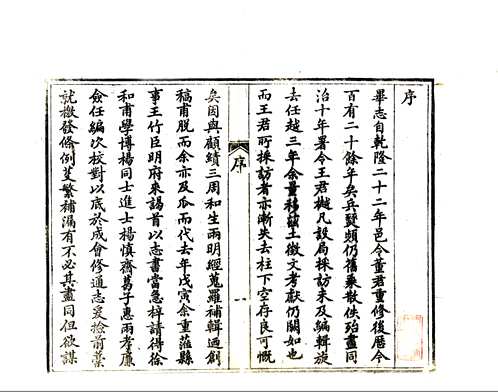 序
畢志自乾隆二十二年邑令董君重修後歷今
百有二十餘年矣兵燹頻仍舊乘散佚殆盡同
治十年署令王君樾凡設局採訪未及編輯旋
去任越三年余量移蒞土徵文考獻仍闕如也
而王君所採訪者亦漸失去柱下空存良可慨
序
矣因與顧績三周和生兩明經蒐羅補輯適創
稿甫脫而余亦及瓜而代去年戊寅余重蒞縣
事王竹臣明府來謁首以志書當急梓請得徐
和甫學博楊同士進士楊慎齋萬子惠兩孝廉
僉任編次校對以底於成會修通志爰撿前橐
就撤發條例芟繁補漏有不必其盡同但欲謀